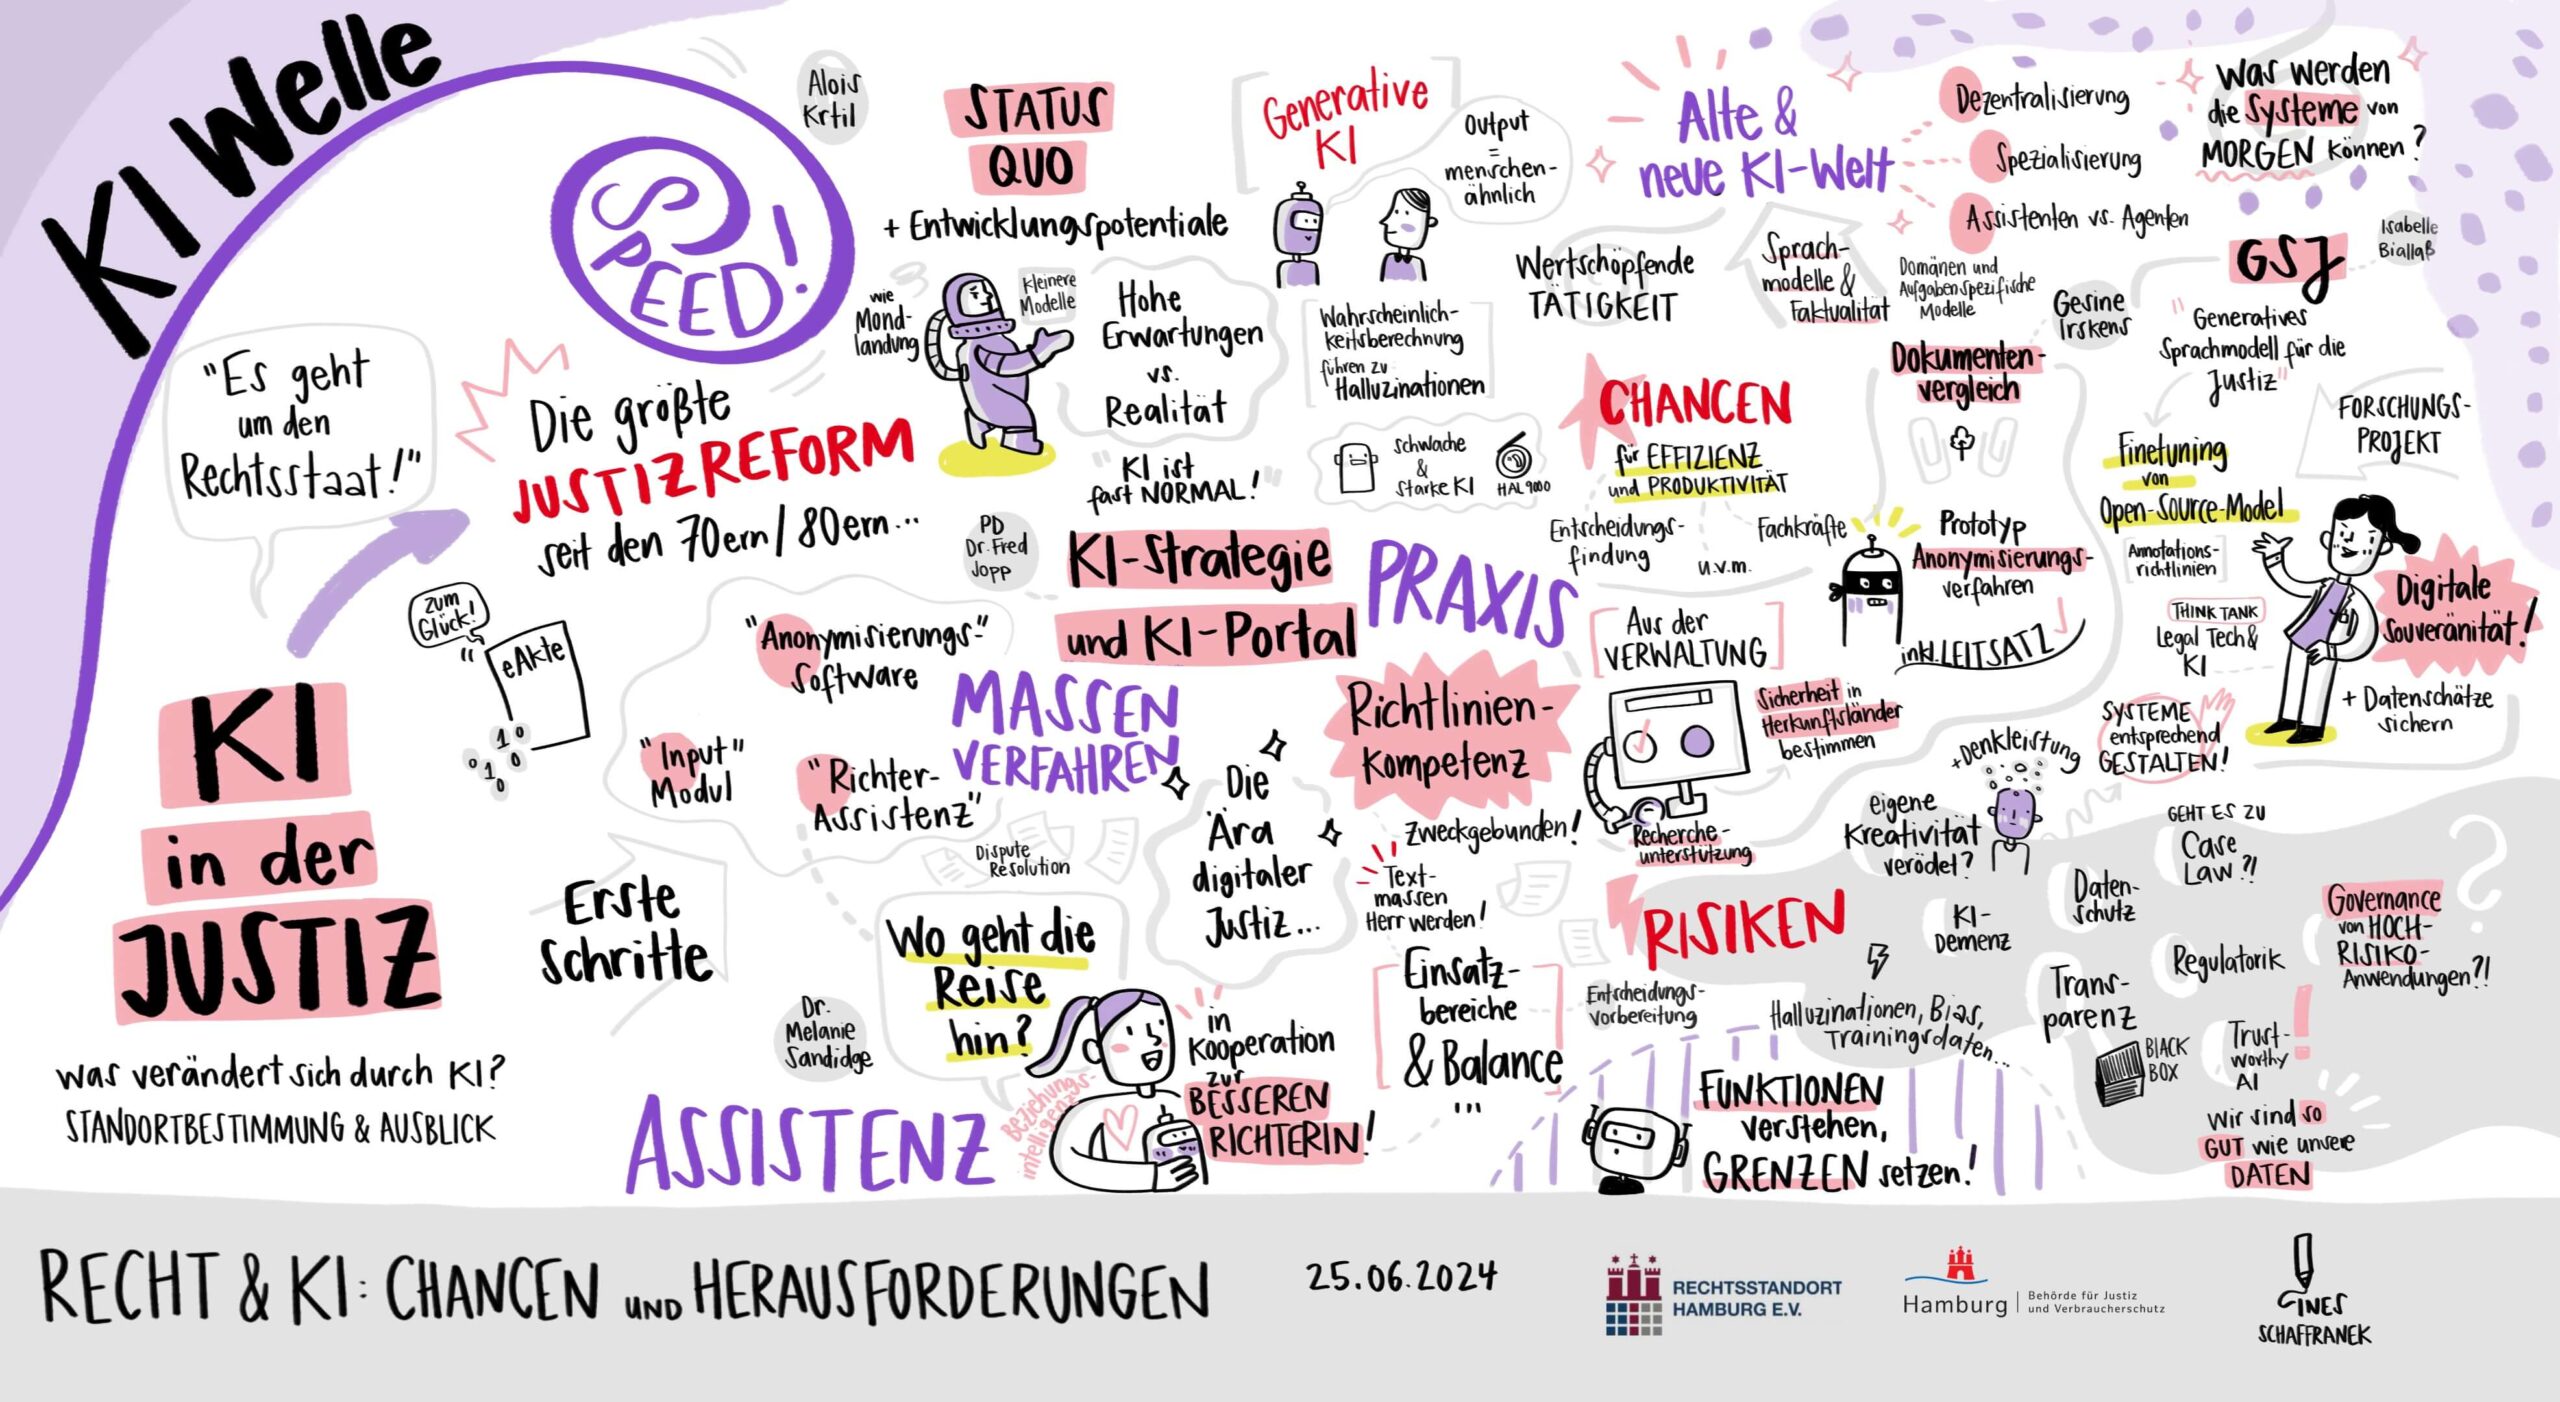 KI Welle
SPEED!
"Es geht
um den
Rechtsstaat!"
Die größte
JUSTIZREFORM
seit den 70ern/80ern...
zum
Glück!
eAkte
1 0
0 1 0
0
KI
in der
JUSTIZ
was verändert sich durch KI?
STANDORTBESTIMMUNG & AUSBLICK
Alois
Krtil
STATUS
QUO
+ Entwicklungspotentiale
wie
Mond-
landung
kleinere
Modelle
Hohe
Erwartungen
vs.
Realität
"KI ist
fast NORMAL!"
Generative
KI
Output
=
menschen-
ähnlich
Wahrscheinlich-
keitsberechnung
führen zu
Halluzinationen
Schwache
&
starke KI
HAL 9000
Alte &
neue KI-Welt
Dezentralisierung
Spezialisierung
Assistenten vs. Agenten
Wertschöpfende
TÄTIGKEIT
Sprach-
modelle &
Faktualität
Domänen und
Aufgabenspezifische
Modelle
Was werden
die Systeme von
MORGEN können?
PD
Dr. Fred
Jopp
KI-Strategie
und KI-Portal
"Anonymisierungs-"
Software
"Input"
Modul
"Richter-
Assistenz"
MASSEN
VERFAHREN
Dispute
Resolution
Erste
Schritte
Dr.
Melanie
Sandidge
Wo geht die
Reise
hin?
Die
Ära
digitaler
Justiz...
ASSISTENZ
Beziehungs-
intelligenz
in
Kooperation
zur
BESSEREN
RICHTERIN!
PRAXIS
Richtlinien-
Kompetenz
Zweckgebunden!
Text-
massen
Herr werden!
Einsatz-
bereiche
& Balance
...
CHANCEN
für EFFIZIENZ
und PRODUKTIVITÄT
Entscheidungs-
findung
u.v.m.
Fachkräfte
Aus der
VERWALTUNG
Sicherheit in
Herkunftsländer
bestimmen
Recherche-
unterstützung
Gesine
Irskens
Dokumenten-
vergleich
Prototyp
Anonymisierungs-
verfahren
inkl. LEITSATZ
Isabelle
Biallaß
GSJ
"Generatives
Sprachmodell für die
Justiz"
FORSCHUNGS-
PROJEKT
Finetuning
von
Open-Source-Model
Annotations-
richtlinien
THINK TANK
Legal Tech &
KI
Digitale
Souveränität!
+ Datenschätze
sichern
SYSTEME
entsprechend
GESTALTEN!
+Denkleistung
eigene
Kreativität
verödet?
RISIKEN
Entscheidungs-
vorbereitung
KI-
Demenz
Halluzinationen, Bias,
Trainingsdaten...
Daten-
schutz
GEHT ES ZU
Case
Law?!
Regulatorik
Trans-
parenz
BLACK
BOX
Trust-
worthy
AI
Governance
von HOCH-
RISIKO-
Anwendungen?!
Wir sind so
GUT wie unsere
DATEN
FUNKTIONEN
verstehen,
GRENZEN setzen!
RECHT & KI: CHANCEN UND HERAUSFORDERUNGEN
25.06.2024
RECHTSSTANDORT
HAMBURG E.V.
Hamburg
Behörde für Justiz
und Verbraucherschutz
INES
SCHAFFRANEK